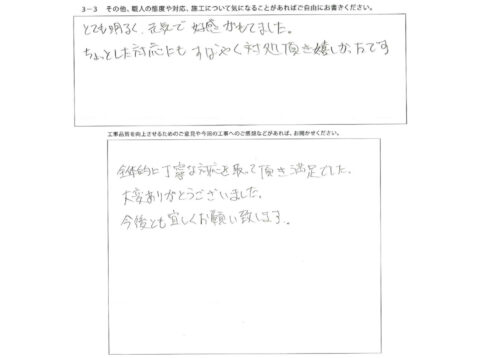 3-3 その他、職人の態度や対応、施工について気になることがあればご自由にお書きください。
とても明るく、元気で好感がもてました。
ちょっとした対応にもすばやく対処頂き嬉しかったです
工事品質を向上させるためのご意見や今回の工事へのご感想などがあれば、お聞かせください。
全体的に丁寧な対応を取って頂き満足でした。
大変ありがとうございました。
今後とも宜しくお願い致します。